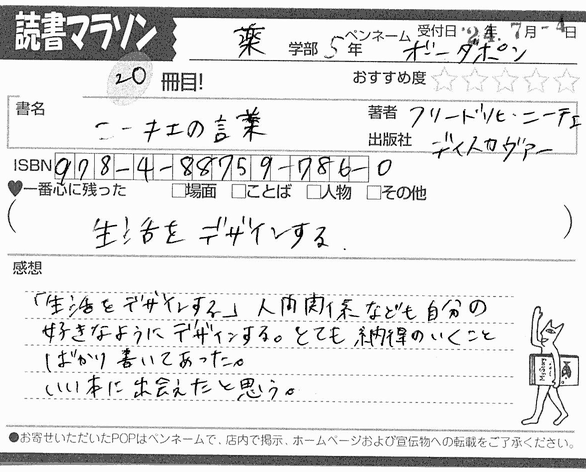 読書マラソン
薬 学部 5 年 ペンネーム ボーダポン
受付日 '24年 7月 -4日
20 冊目!
おすすめ度 ☆☆☆☆☆
書名 ニーチェの言葉
著者 フリードリヒ・ニーチェ
出版社 ディスカヴァー
ISBN 978-4-88759-786-0
♥一番心に残った □場面 □ことば □人物 □その他
(生活をデザインする。)
感想
「生活をデザインする」人間関係なども自分の
好きなようにデザインする。とても納得のいくこと
ばかり書いてあった。
いい本に出会えたと思う。
●お寄せいただいたPOPはペンネームで、店内で掲示、ホームページおよび宣伝物への転載をご了承ください。